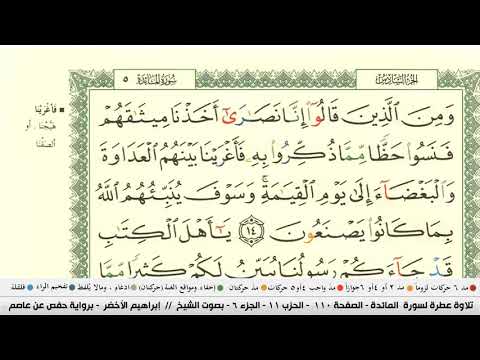 الجزء السادس
سورة المائدة ٥
وَمِنَ ٱلَّذِينَ قَالُوٓا۟ إِنَّا نَصَٰرَىٰٓ أَخَذْنَا مِيثَٰقَهُمْ
فَنَسُوا۟ حَظًّا مِّمَّا ذُكِّرُوا۟ بِهِۦ فَأَغْرَيْنَا بَيْنَهُمُ ٱلْعَدَاوَةَ
وَٱلْبَغْضَآءَ إِلَىٰ يَوْمِ ٱلْقِيَٰمَةِ ۚ وَسَوْفَ يُنَبِّئُهُمُ ٱللَّهُ
بِمَا كَانُوا۟ يَصْنَعُونَ ١٤ يَٰٓأَهْلَ ٱلْكِتَٰبِ
قَدْ جَآءَكُمْ رَسُولُنَا يُبَيِّنُ لَكُمْ كَثِيرًا مِّمَّا
فَأَغْرَيْنَا
هيّجنا . أو
ألصقنا
مد ٦ حركات لزوماً مد ٢ أو ٤ أو ٦ جوازاً مد واجب ٤ أو ٥ حركات مد حركتان إخفاء، ومواقع الغنة (حركتان) ادغام ، ومالا يلفظ تفخيم الراء قلقلة
تلاوة عطرة لسورة المائدة - الصفحة ١١٠ - الحزب ١١ - الجزء ٦ - بصوت الشيخ // إبراهيم الأخضر - برواية حفص عن عاصم